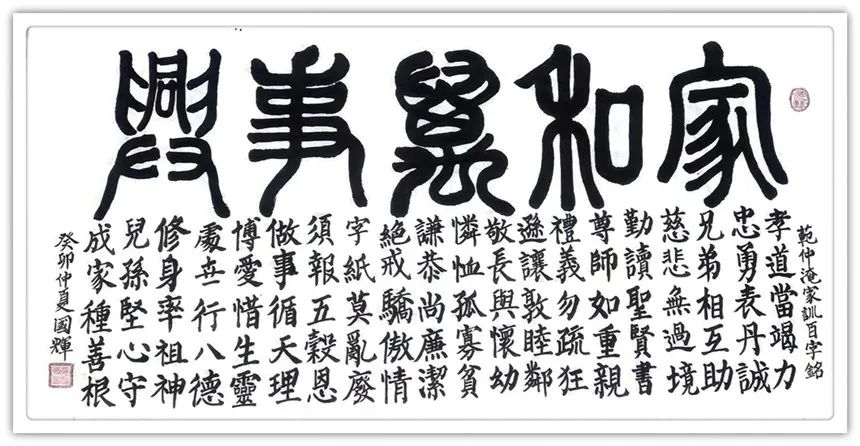 家和萬事興
範仲淹家訓百字銘
孝道當竭力
忠勇表丹誠
兄弟相互助
慈悲無過境
勤讀聖賢書
尊師如重親
禮義勿疏狂
遜讓敦睦鄰
敬長與懷幼
憐恤孤寡貧
謙恭尚廉潔
絕戒驕傲情
字紙莫亂廢
須報五穀恩
做事循天理
博愛惜生靈
處世行八德
修身率祖神
兒孫堅心守
成家種善根
癸卯仲夏國輝